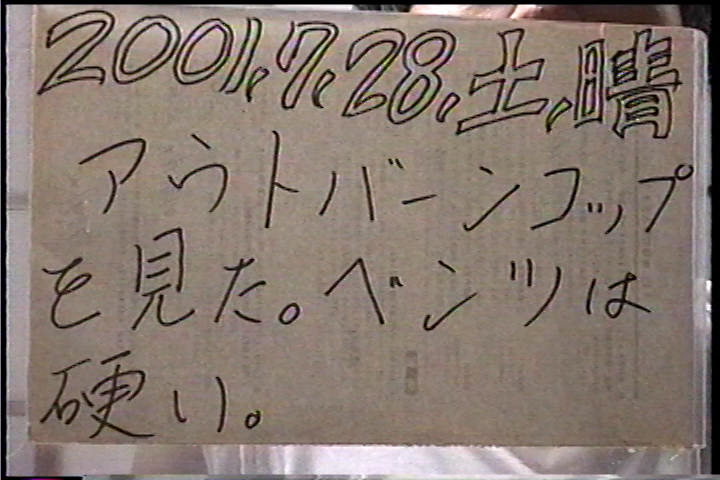 2001,7,28,土,晴
アウトバーンコップ
を見た。ベンツは
硬い。